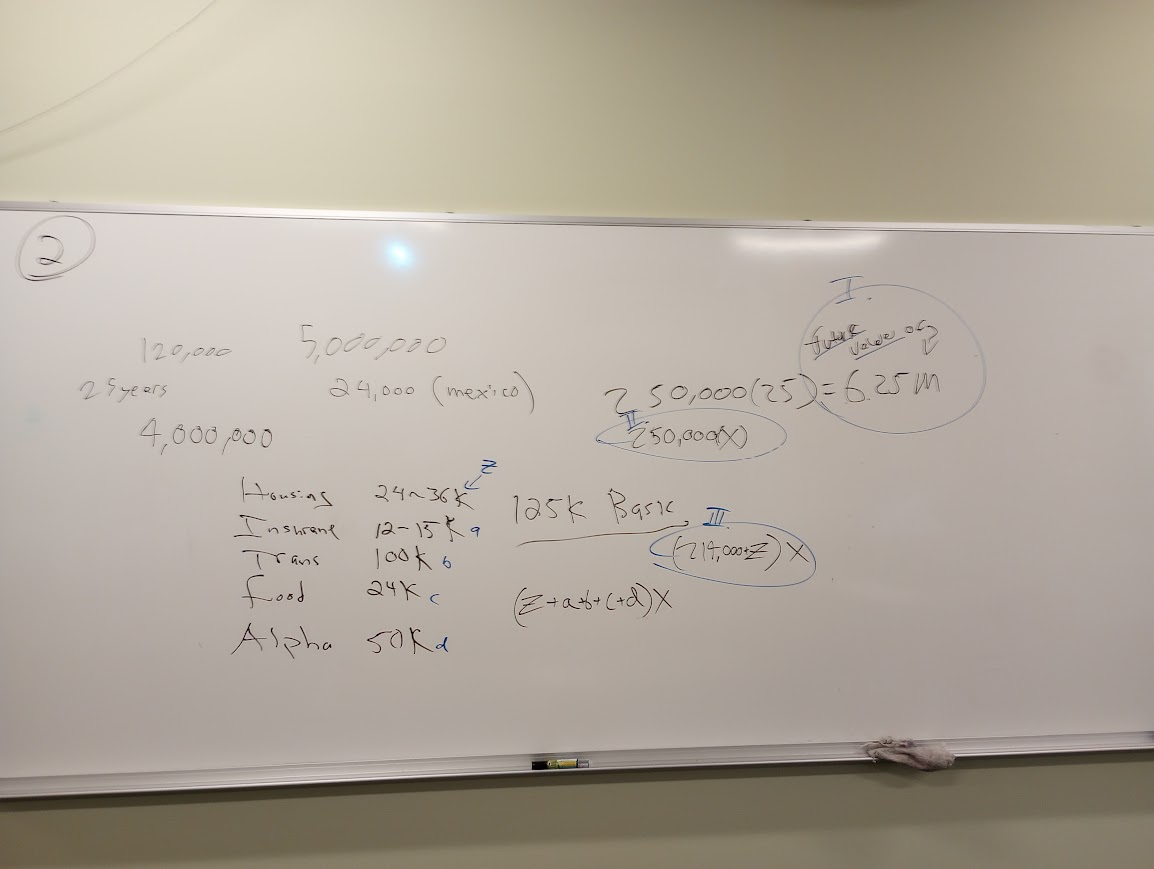 2
120,000
5,000,000
25 years
24,000 (mexico)
4,000,000
I.
future value of
250,000(25) = 6.25m
II
250,000(X)
Housing 24~36K Z
12-15K a
Trans 100K b
Food 24K c
Alpha 50K d
125K Basic
III
(214,000+Z) X
(Z+a+b+c+d)X